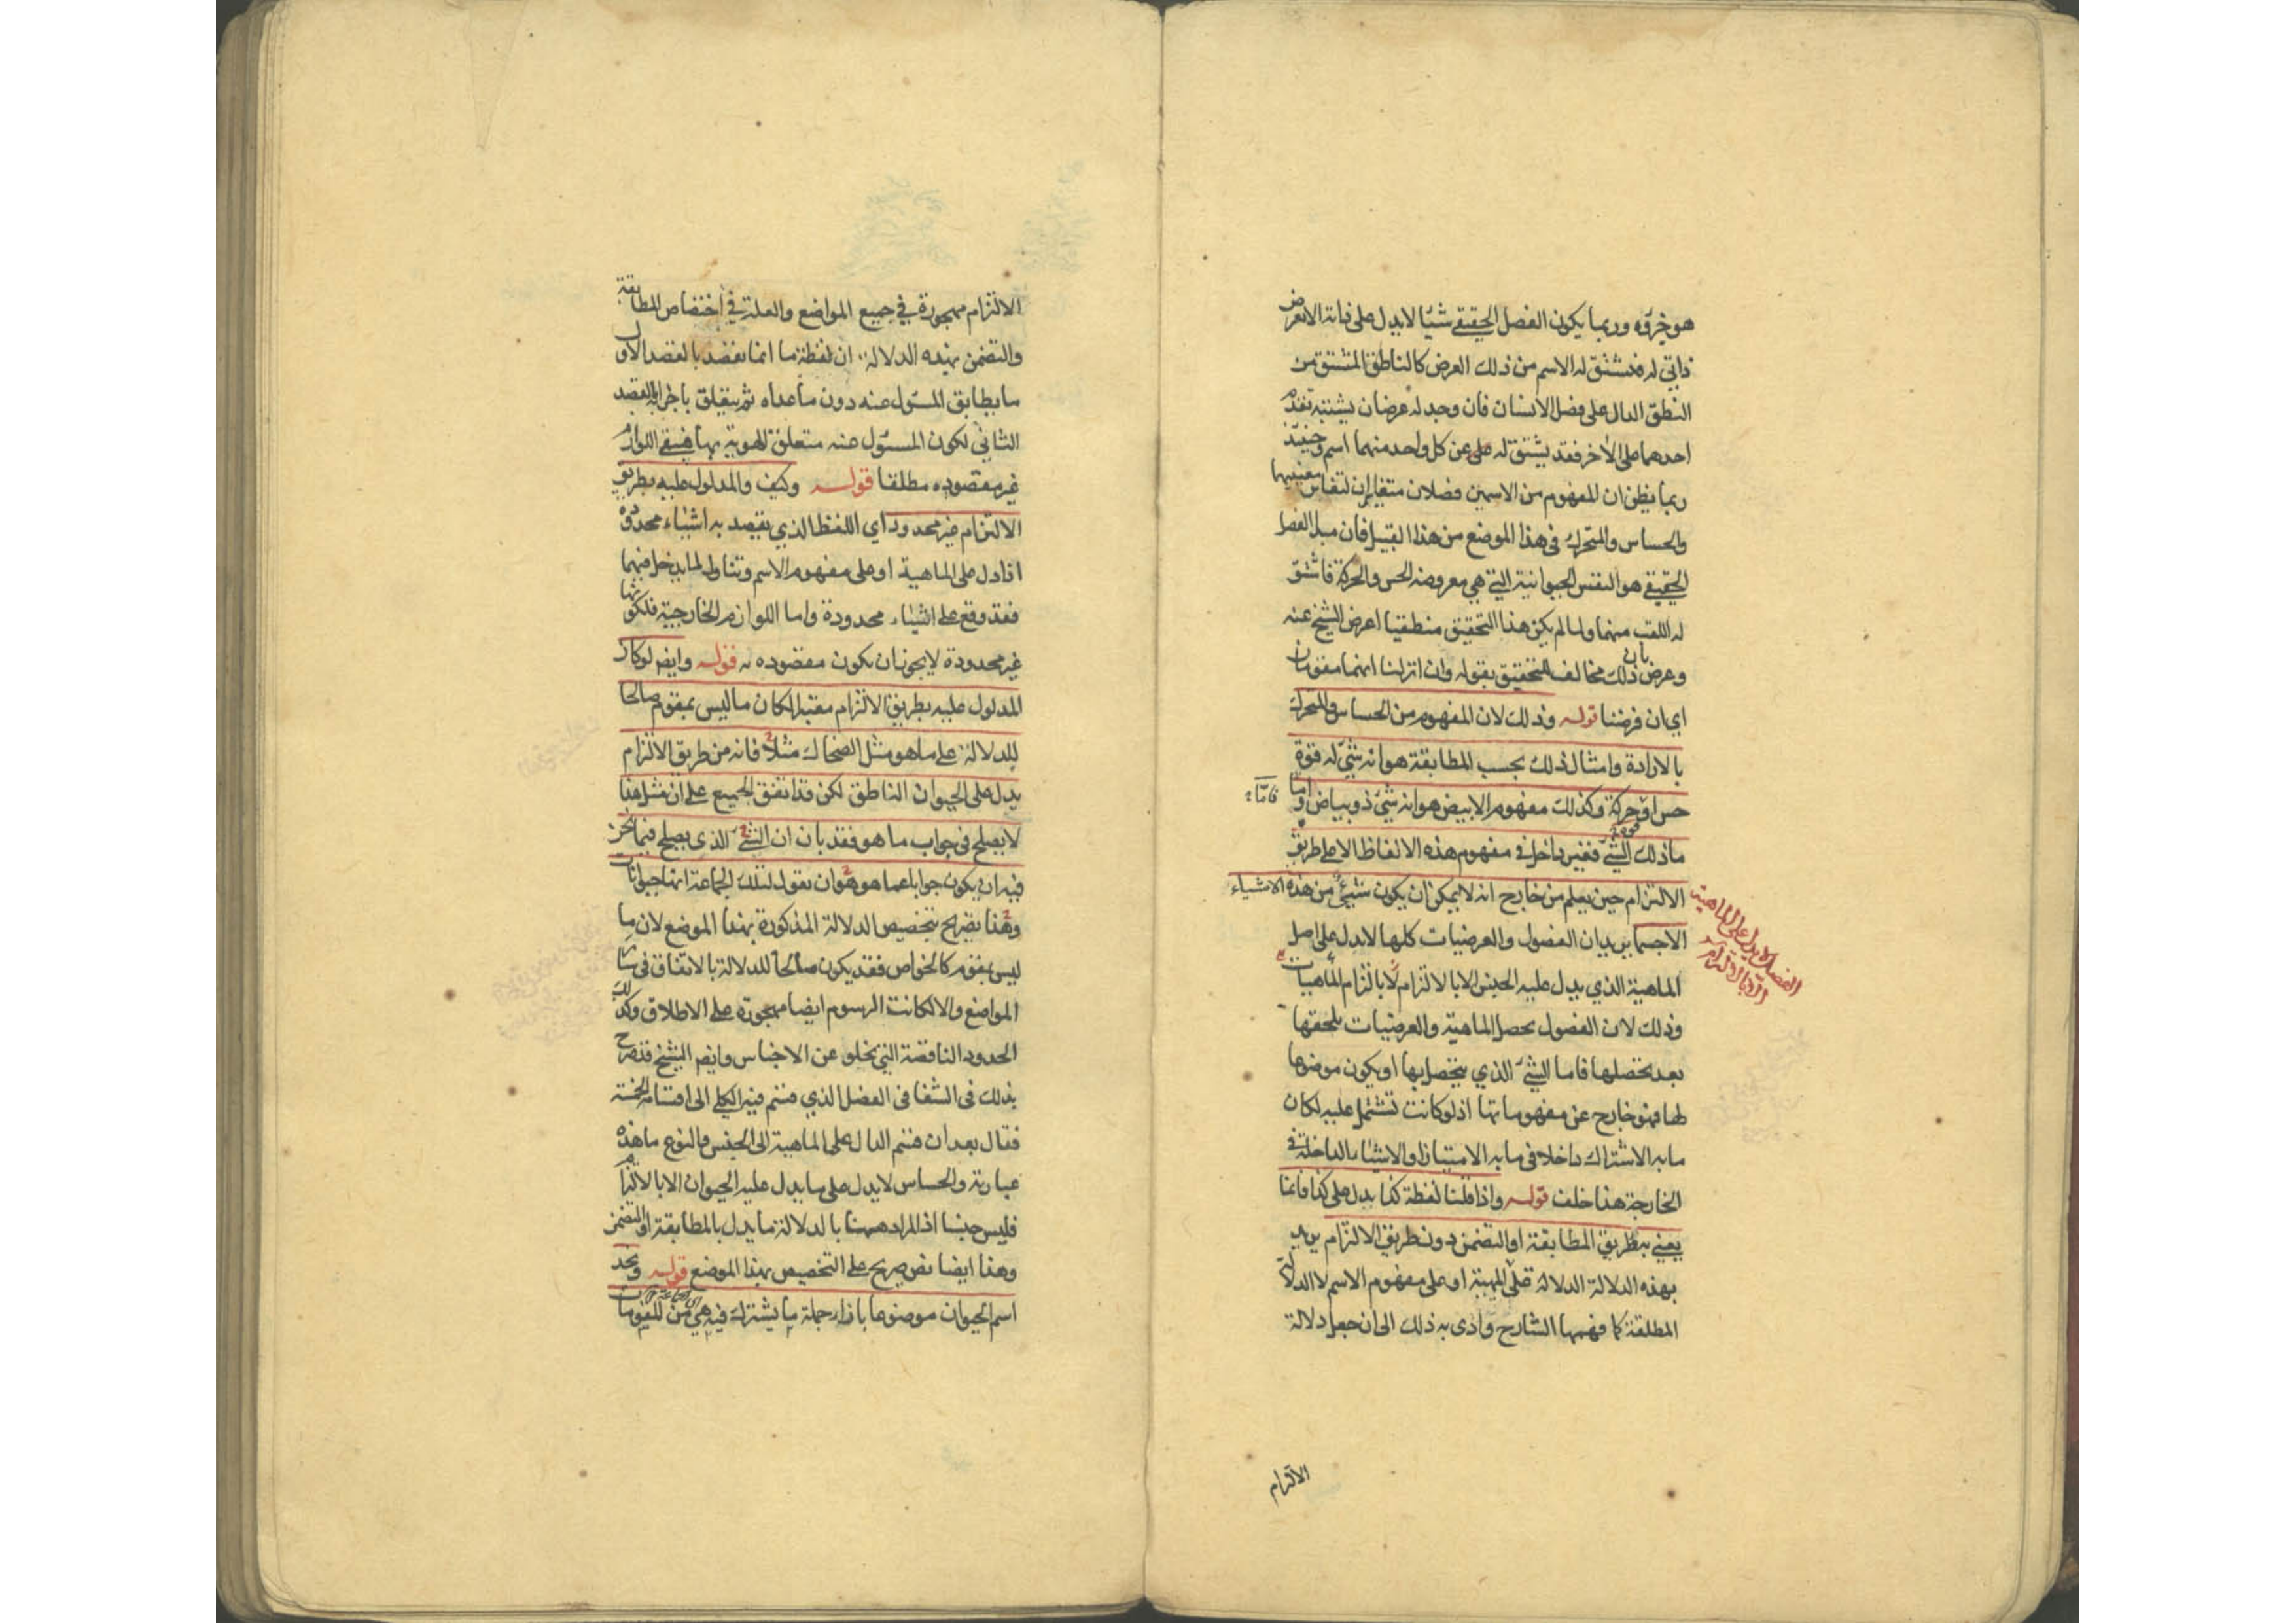 هو جزؤه وربما يكون الفصل الحقيقي شيئا لا يدل على ذاته الا بعرض
ذاتي له فيشتق له الاسم من ذلك العرض كالناطق المشتق من
النطق الدال على فصل الانسان فان وجد له عرضان يشتبه تقدم
احدهما على الاخر فقد يشتق له عن كل واحد منهما اسم وحينئذ
ربما يظن ان المفهوم من الاسمين فصلان متغايران لتغاير معنييهما
والحساس والمتحرك في هذا الموضع من هذا القبيل فان مبدا الفصل
الحقيقي هو النفس الحيوانية التي هي معروضة الحس والحركة فاشتق
له اللقب منهما ولما لم يكن هذا التحقيق منطقيا اعرض الشيخ عنه
وعرض بان ذلك مخالف للتحقيق بقوله وان انزلنا انهما مقومان
اي ان فرضنا قوله وذلك لان المفهوم من الحساس والمتحرك
بالارادة وامثال ذلك بحسب المطابقة هو انه شئ له قوة
حس او حركة وكذلك مفهوم الابيض هو انه شئ ذو بياض واما
فاما
ماذلك الشئ فغير داخل في مفهوم هذه الالفاظ الا على طريق
الالتزام حين يعلم من خارج انه لا يمكن ان يكون شئ من هذه الاشياء
الفصل لا يدل على الماهية
الا بالالتزام
الا جسما يريد ان الفصول والعرضيات كلها لا يدل على اصل
الماهية الذي يدل عليه الجنس الا بالالتزام لا بالتزام الماهيات
وذلك لان الفصول يحصل الماهية والعرضيات يلحقها
بعد تحصلها فاما الشئ الذي يتحصل بها او يكون موضوعا
لها فهو خارج عن مفهوماتها اذ لو كانت تشتمل عليه لكان
ما به الاشتراك داخلا في ما به الامتياز او الاشياء الداخلة في
الخارجة هذا خلف قوله واذا قلنا لفظة كذا يدل على كذا فانما
يعني به طريق المطابقة او التضمن دون طريق الالتزام يريد
بهذه الدلالة الدلالة على المهية او على مفهوم الاسم لا الدلالة
المطلقة كما فهمها الشارح وادى به ذلك الى ان جعل دلالة
الالتزام
الالتزام مهجورة في جميع المواضع والعلة في اختصاص المطابقة
والتضمن بهذه الدلالة ان لفظة ما انما يقصد بالقصد الاول
ما يطابق المسئول عنه دون ما عداه ثم يتعلق باجزائه بالقصد
الثاني لكون المسئول عنه متعلق الهوية بها فيبقى اللوازم
غير مقصوده مطلقا قوله وكيف والمدلول عليه بطريق
الالتزام غير محدود اي اللفظ الذي يقصد به اشياء محدودة
اذا دل على الماهية او على مفهوم الاسم وتناول لما يدخل فيهما
فقد وقع على اشياء محدودة واما اللوازم الخارجية فلكونها
غير محدودة لا يجوز ان يكون مقصوده به قوله وايضا لو كان
المدلول عليه بطريق الالتزام معتبرا لكان ما ليس بمقوم صالحا
للدلالة على ما هو مثل الضحاك مثلا فانه من طريق الالتزام
يدل على الحيوان الناطق لكن قد اتفق الجميع على ان مثل هذا
لا يصلح في جواب ما هو فقد بان ان الشئ الذي يصلح فيما نحن
فيه ان يكون جوابا عما هو هو ان نقول لتلك الجماعة انها حيوانات
وهذا يصرح بتخصيص الدلالة المذكورة بهذا الموضع لان ما
ليس بمقوم كالخواص فقد يكون صالحا للدلالة بالاتفاق في سائر
المواضع والا لكانت الرسوم ايضا مهجورة على الاطلاق وكذلك
الحدود الناقصة التي تخلو عن الاجناس وايضا الشيخ قد صرح
بذلك في الشفا في الفصل الذي قسم فيه الكلي الى اقسامه الخمسة
فقال بعد ان قسم الدال على الماهية الى الجنس والنوع ما هذه
عبارته والحساس لا يدل على ما يدل عليه الحيوان الا بالالتزام
فليس جنسا اذ المراد ههنا بالدلالة ما يدل بالمطابقة او التضمن
وهذا ايضا نص صريح على التخصيص بهذا الموضع قوله ونجد
اسم الحيوان موضوعا بازاء جملة ما يشترك فيه هي من المقومات